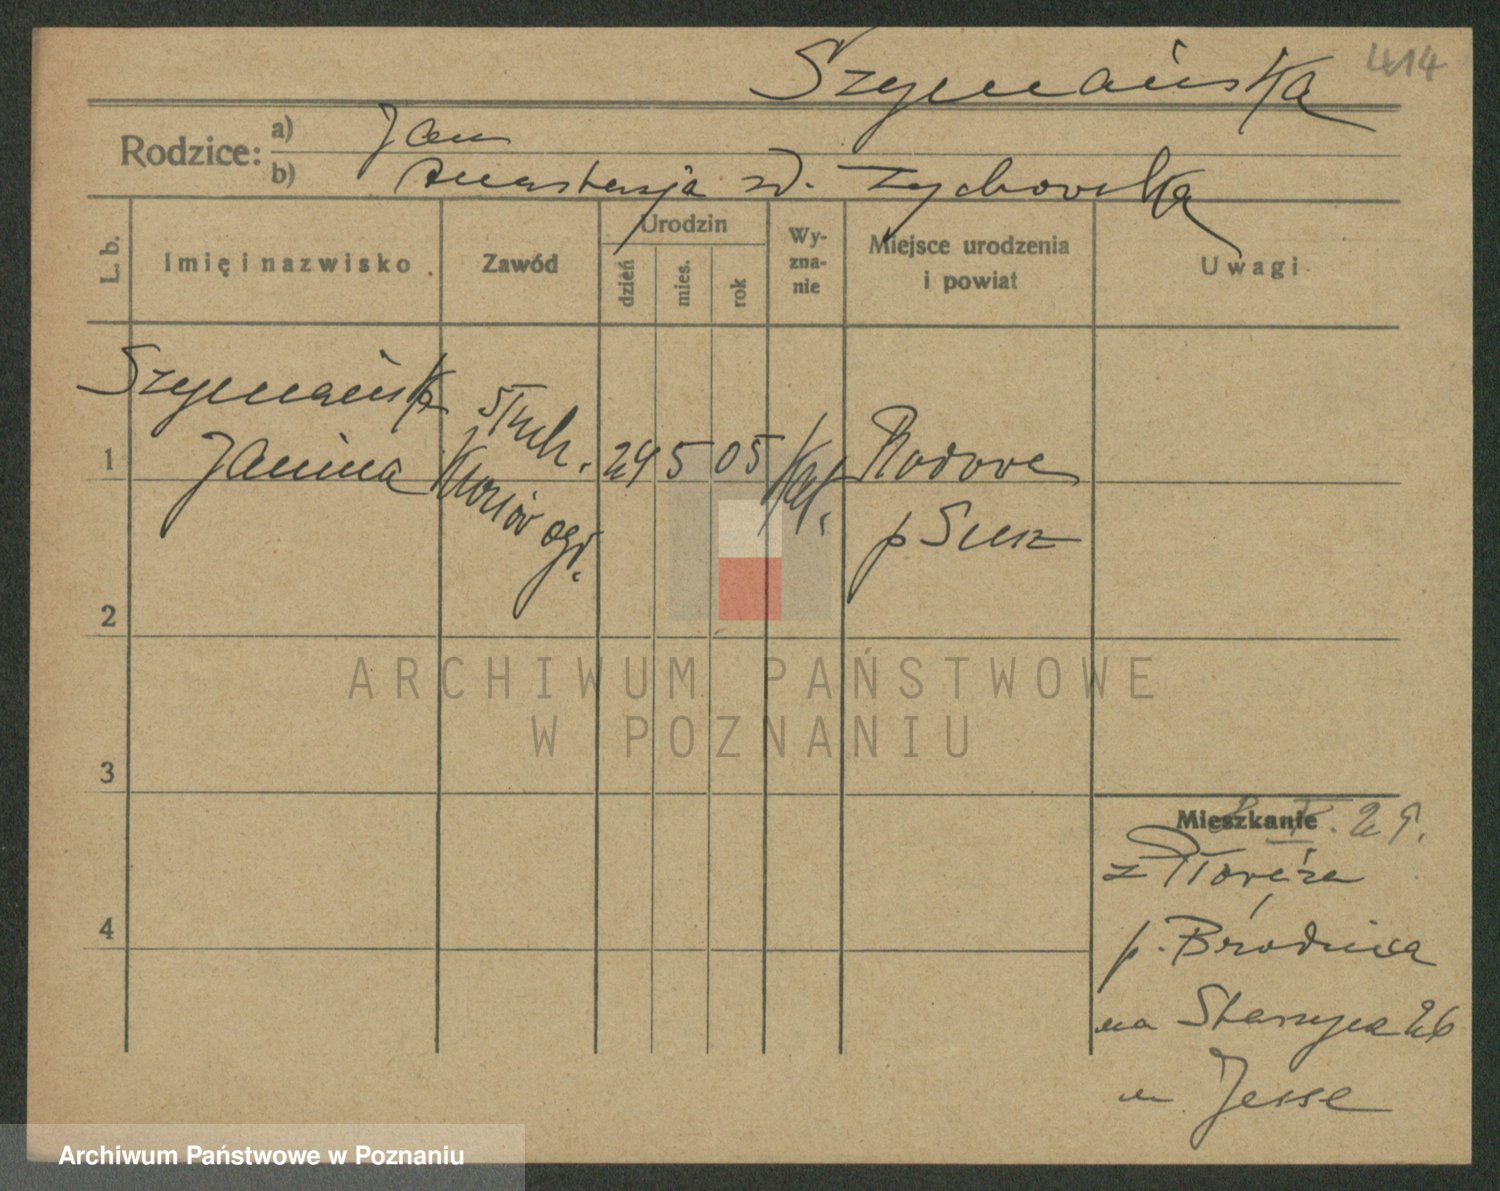 Szymańska 414
Rodzice: a) Jan
b) Anastazja zd. Zychowska
L. b. Imię i nazwisko Zawód Urodzin dzień mies. rok Wy-zna-nie Miejsce urodzenia i powiat Uwagi
Szymańska
1 Janina 24 5 05 Kat. Rodowe
ogr. p Susz
2
ARCHIWUM PAŃSTWOWE
W POZNANIU
3
Mieszkanie 29.
z
p. Brodnica
na 26
Jesse
4
Archiwum Państwowe w Poznaniu